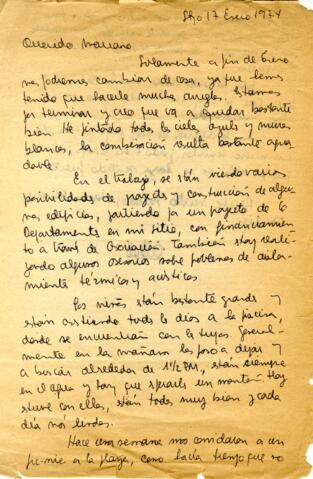 Stgo 17 Enero 1974
Querido Mariano
Solamente a fin de Enero
nos podremos cambiar de casa, ya que hemos
tenido que hacerle muchos arreglos. Estamos
por terminar y creo que va a quedar bastante
bien. He pintado todos los cielos azules y muros
blancos, la combinación resulta bastante agra
dable.
En el trabajo, se están viendo varias
posibilidades de proyectos y construcción de algu
nos edificios, partiendo ya un proyecto de 6
Departamentos en mi sitio, con financiamien
to a través de Asociación. También estoy reali
zando algunas asesorías sobre problemas de aisla
miento térmicos y acústicos
Los niños están bastante grandes y
están asistiendo todos los días a la piscina,
donde se encuentran con los tuyos. General-
mente en la mañana los paso a dejar y
a buscar alrededor de 1 1/2 PM., están siempre
en el agua y hay que esperarlos un montón. Hoy
estuve con ellos, están todos muy bien y cada
día más lindos.
Hace una semana nos convidaron a un
pic-nic a la playa, como hacía tiempo que no